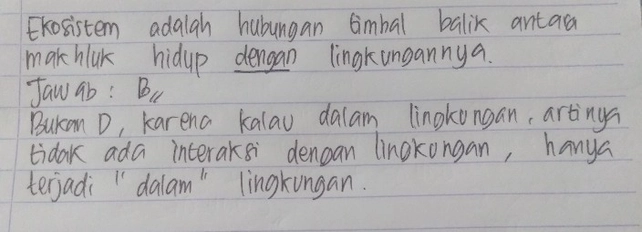 Ekosistem adalah hubungan timbal balik antara
makhluk hidup dengan lingkungannya.
Jawab : B//
Bukan D, karena kalau dalam lingkungan, artinya
tidak ada interaksi dengan lingkungan, hanya
terjadi "dalam" lingkungan.